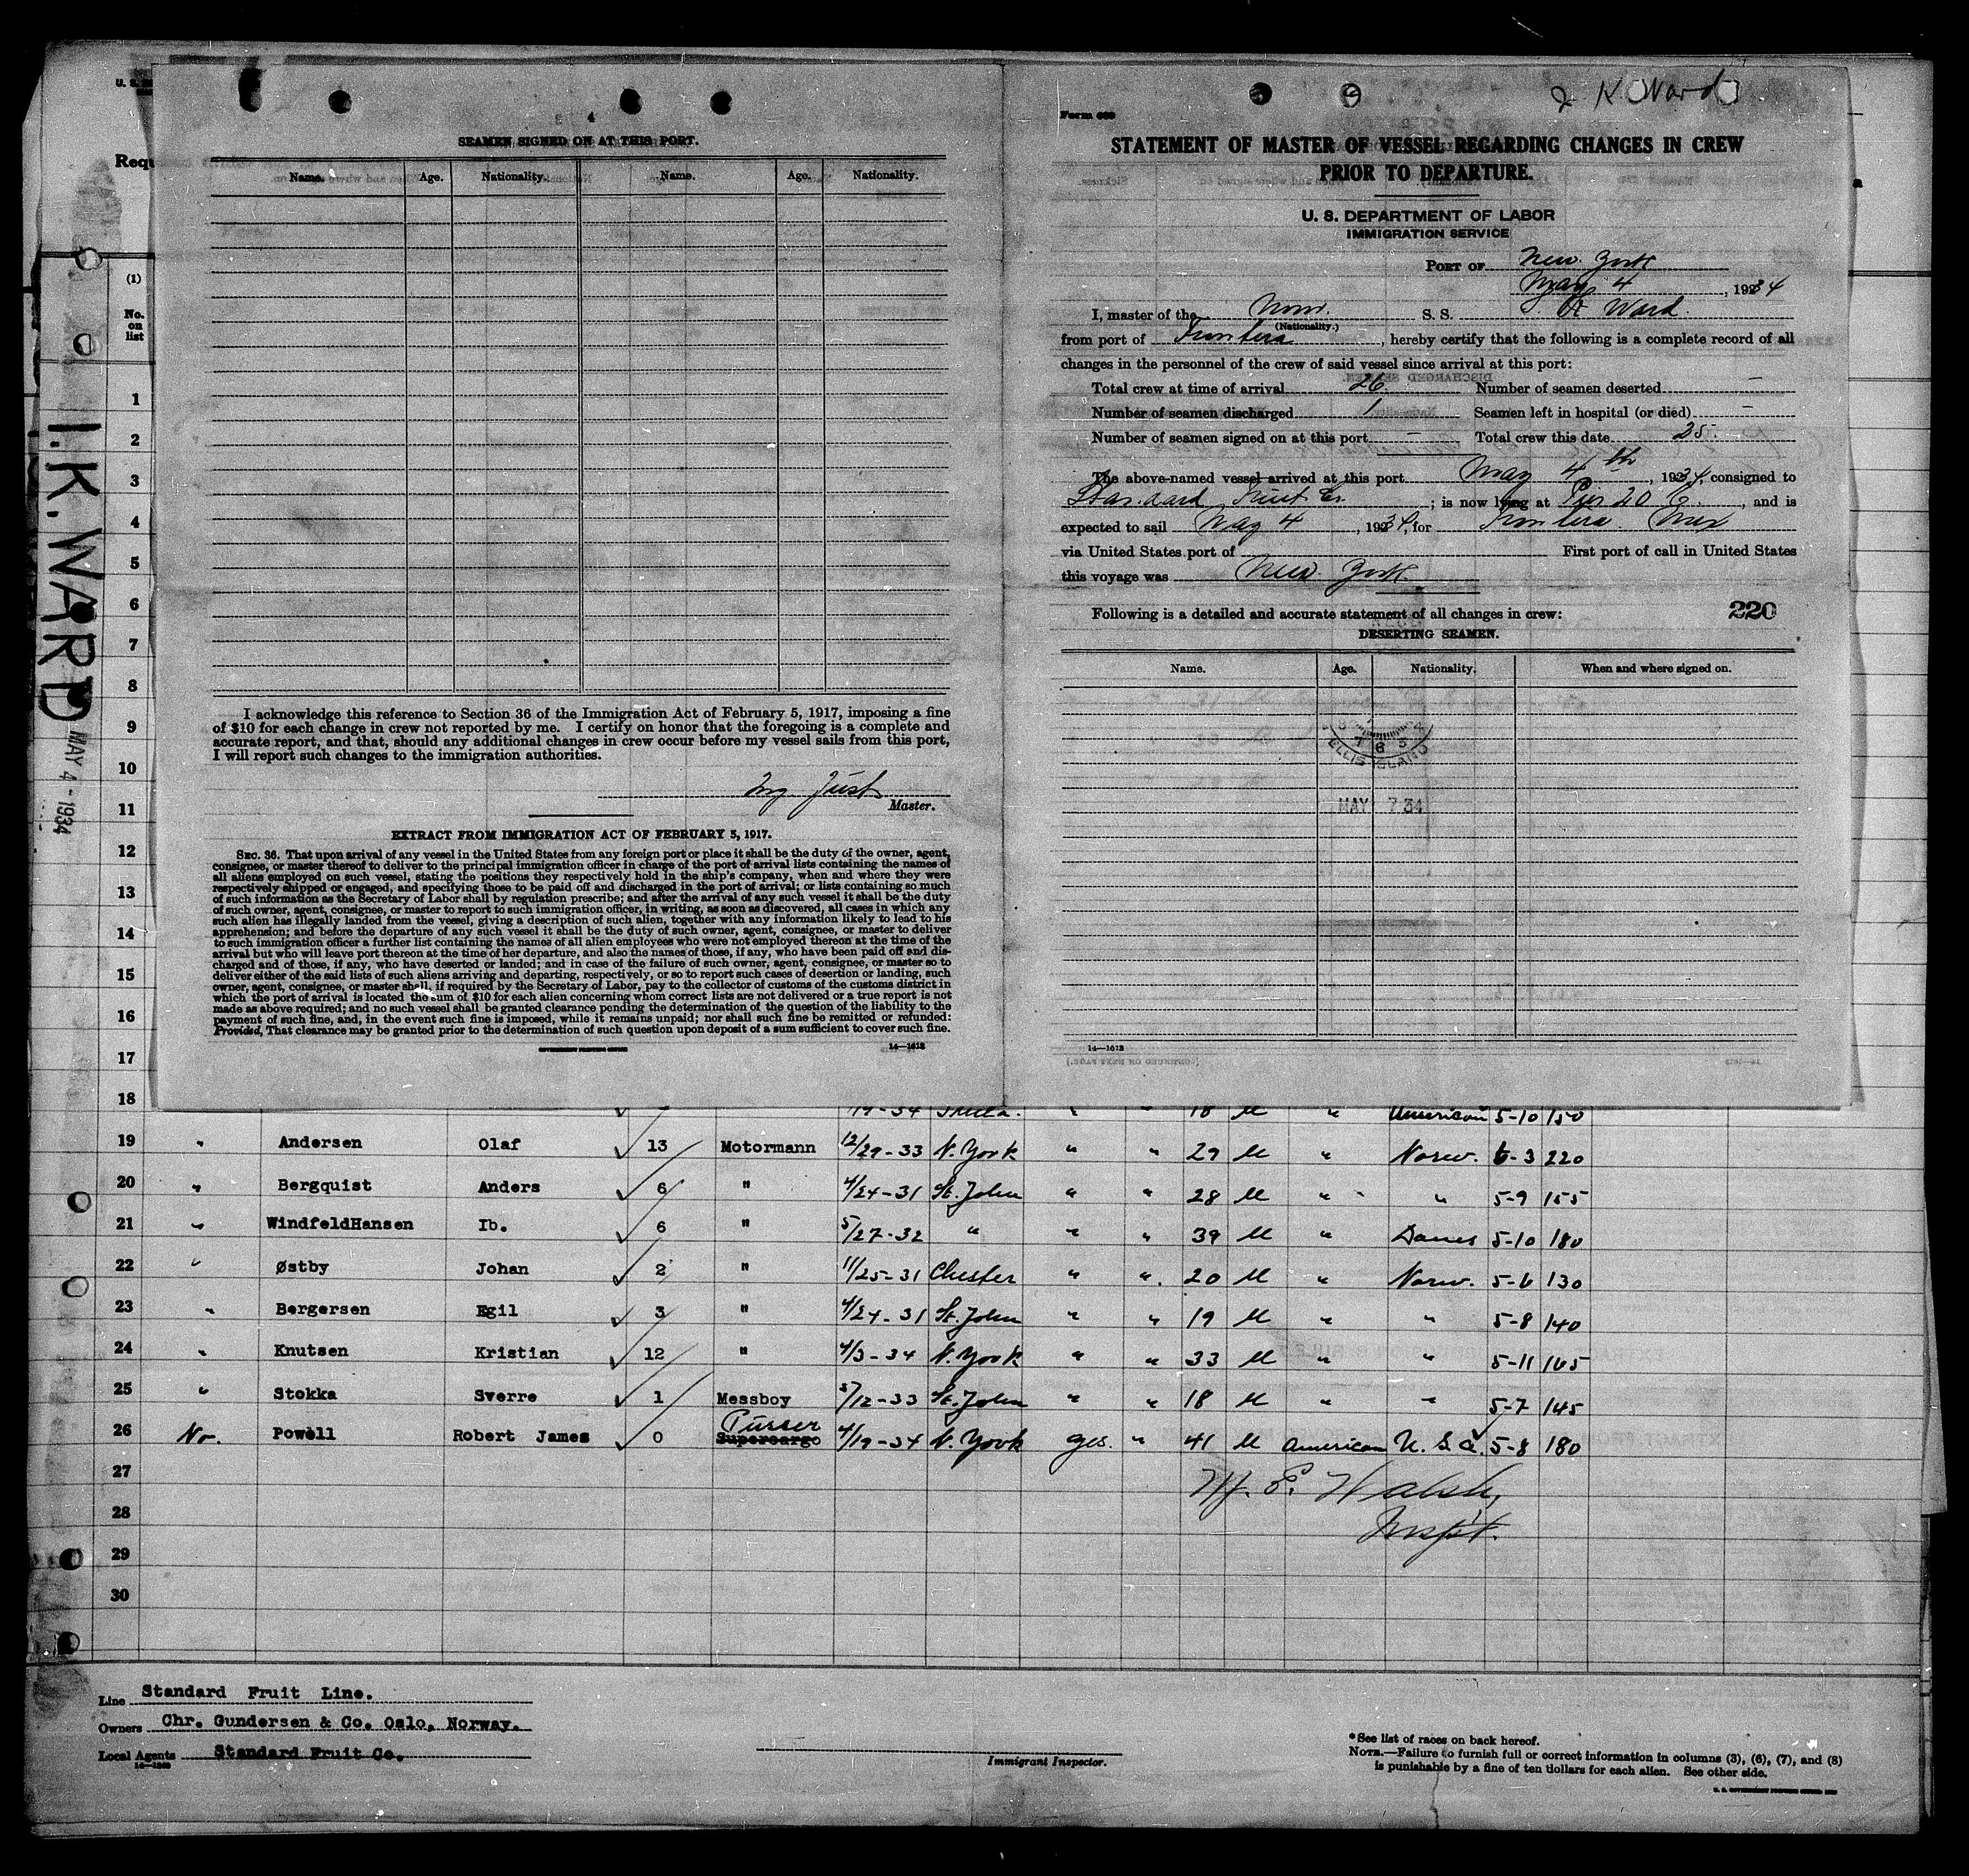 J K Ward
Form 689
STATEMENT OF MASTER OF VESSEL REGARDING CHANGES IN CREW
PRIOR TO DEPARTURE.
U. S. DEPARTMENT OF LABOR
IMMIGRATION SERVICE
PORT OF New York
May 4, 1934
I, master of the Norw. S. S. I K Ward
(Nationality.)
from port of Frontera, hereby certify that the following is a complete record of all
changes in the personnel of the crew of said vessel since arrival at this port:
Total crew at time of arrival 26 Number of seamen deserted -
Number of seamen discharged 1 Seamen left in hospital (or died) -
Number of seamen signed on at this port - Total crew this date 25.
The above-named vessel arrived at this port May 4th, 1934, consigned to
Standard Fruit Co.; is now lying at Pier 20 E., and is
expected to sail May 4, 1934, for Frontera Mex
via United States port of First port of call in United States
this voyage was New York
Following is a detailed and accurate statement of all changes in crew: 220
DESERTING SEAMEN.
Name. Age. Nationality. When and where signed on.
ELLIS ISLAND
MAY 7 34
14—1613
4
SEAMEN SIGNED ON AT THIS PORT.
Name. Age. Nationality. Name. Age. Nationality.
I acknowledge this reference to Section 36 of the Immigration Act of February 5, 1917, imposing a fine
of $10 for each change in crew not reported by me. I certify on honor that the foregoing is a complete and
accurate report, and that, should any additional changes in crew occur before my vessel sails from this port,
I will report such changes to the immigration authorities.
Master.
EXTRACT FROM IMMIGRATION ACT OF FEBRUARY 5, 1917.
SEC. 36. That upon arrival of any vessel in the United States from any foreign port or place it shall be the duty of the owner, agent,
consignee, or master thereof to deliver to the principal immigration officer in charge of the port of arrival lists containing the names of
all aliens employed on such vessel, stating the positions they respectively hold in the ship's company, when and where they were
respectively shipped or engaged, and specifying those to be paid off and discharged in the port of arrival; or lists containing so much
of such information as the Secretary of Labor shall by regulation prescribe; and after the arrival of any such vessel it shall be the duty
of such owner, agent, consignee, or master to report to such immigration officer, in writing, as soon as discovered, all cases in which any
such alien has illegally landed from the vessel, giving a description of such alien, together with any information likely to lead to his
apprehension; and before the departure of any such vessel it shall be the duty of such owner, agent, consignee, or master to deliver
to such immigration officer a further list containing the names of all alien employees who were not employed thereon at the time of the
arrival but who will leave port thereon at the time of her departure, and also the names of those, if any, who have been paid off and dis-
charged and of those, if any, who have deserted or landed; and in case of the failure of such owner, agent, consignee, or master so to
deliver either of the said lists of such aliens arriving and departing, respectively, or so to report such cases of desertion or landing, such
owner, agent, consignee, or master shall, if required by the Secretary of Labor, pay to the collector of customs of the customs district in
which the port of arrival is located the sum of $10 for each alien concerning whom correct lists are not delivered or a true report is not
made as above required; and no such vessel shall be granted clearance pending the determination of the question of the liability to the
payment of such fine, and, in the event such fine is imposed, while it remains unpaid; nor shall such fine be remitted or refunded:
Provided, That clearance may be granted prior to the determination of such question upon deposit of a sum sufficient to cover such fine.
GOVERNMENT PRINTING OFFICE 14—1613
I.K.WARD
MAY 4 - 1934
(1)
No.
on
list
1
2
3
4
5
6
7
8
9
10
11
12
13
14
15
16
17
18 American 5-10 150
19 " Andersen Olaf 13 Motormann 12/29-33 N. York " " 29 M " Norw. 6-3 220
20 " Bergquist Anders 6 " 4/24-31 St. John " " 28 M " " 5-9 155
21 " WindfeldHansen Ib. 6 " 5/27-32 " " " 39 M " Danes 5-10 180
22 " Østby Johan 2 " 11/25-31 Chester " " 20 M " Norw. 5-6 130
23 " Bergersen Egil 3 " 4/24-31 St. John " " 19 M " " 5-8 140
24 " Knutsen Kristian 12 " 4/3-34 N. York " " 33 M " " 5-11 165
25 " Stokka Sverre 1 Messboy 5/12-33 St. John " " 18 M " " 5-7 145
26 No. Powell Robert James 0 Supercargo Purser 4/19-34 N. York yes. " 41 M American U. S. A. 5-8 180
27
28
29
30
Walsh,
Inspt.
Line Standard Fruit Line.
Owners Chr. Gundersen & Co. Oslo, Norway.
Local Agents Standard Fruit Co.
Immigrant Inspector.
*See list of races on back hereof.
NOTE.—Failure to furnish full or correct information in columns (3), (6), (7), and (8)
is punishable by a fine of ten dollars for each alien. See other side.